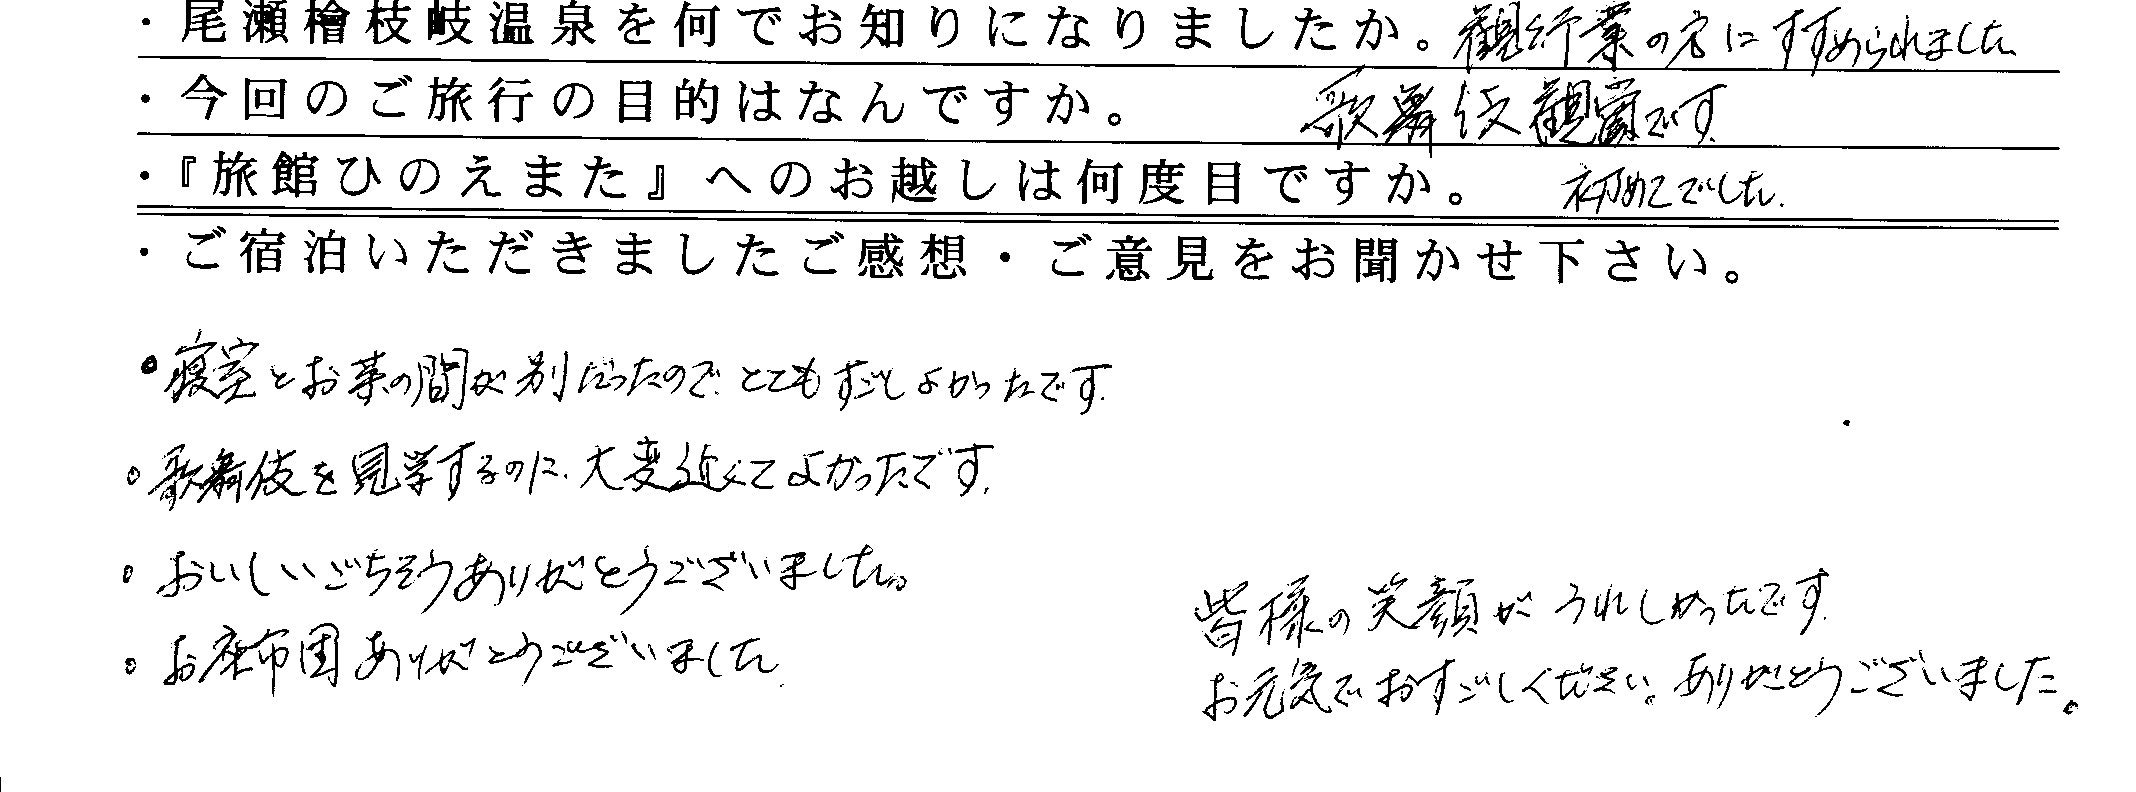 ・尾瀬檜枝岐温泉を何でお知りになりましたか。観行業の方にすすめられました
・今回のご旅行の目的はなんですか。 歌舞伎観賞です
・『旅館ひのえまた』へのお越しは何度目ですか。 初めてでした。
・ご宿泊いただきましたご感想・ご意見をお聞かせ下さい。
・寝室とお茶の間が別だったので、とてもすごしよかったです。
・歌舞伎を見学するのに、大変近くてよかったです。
・おいしいごちそうありがとうございました。
・お座布団ありがとうございました。
皆様の笑顔がうれしかったです。
お元気でおすごしください。ありがとうございました。